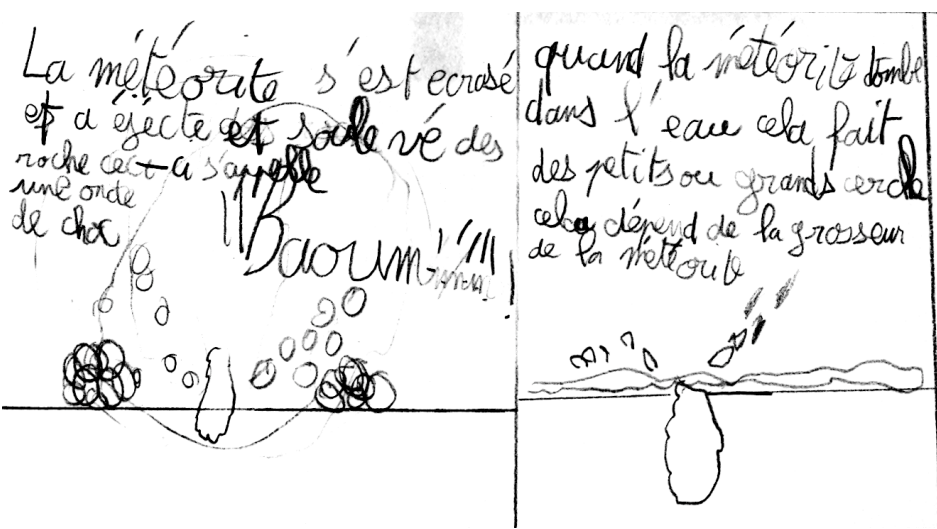 La météorite s'est ecrasé
et a éjecte et soule vé des
roche ceci-a s'appelle
une onde
de choc
!!Baoum!!!!!
quand la météorite tombe
dans l'eau cela fait
des petits ou grands cercle
cela dépend de la grosseur
de la météorite